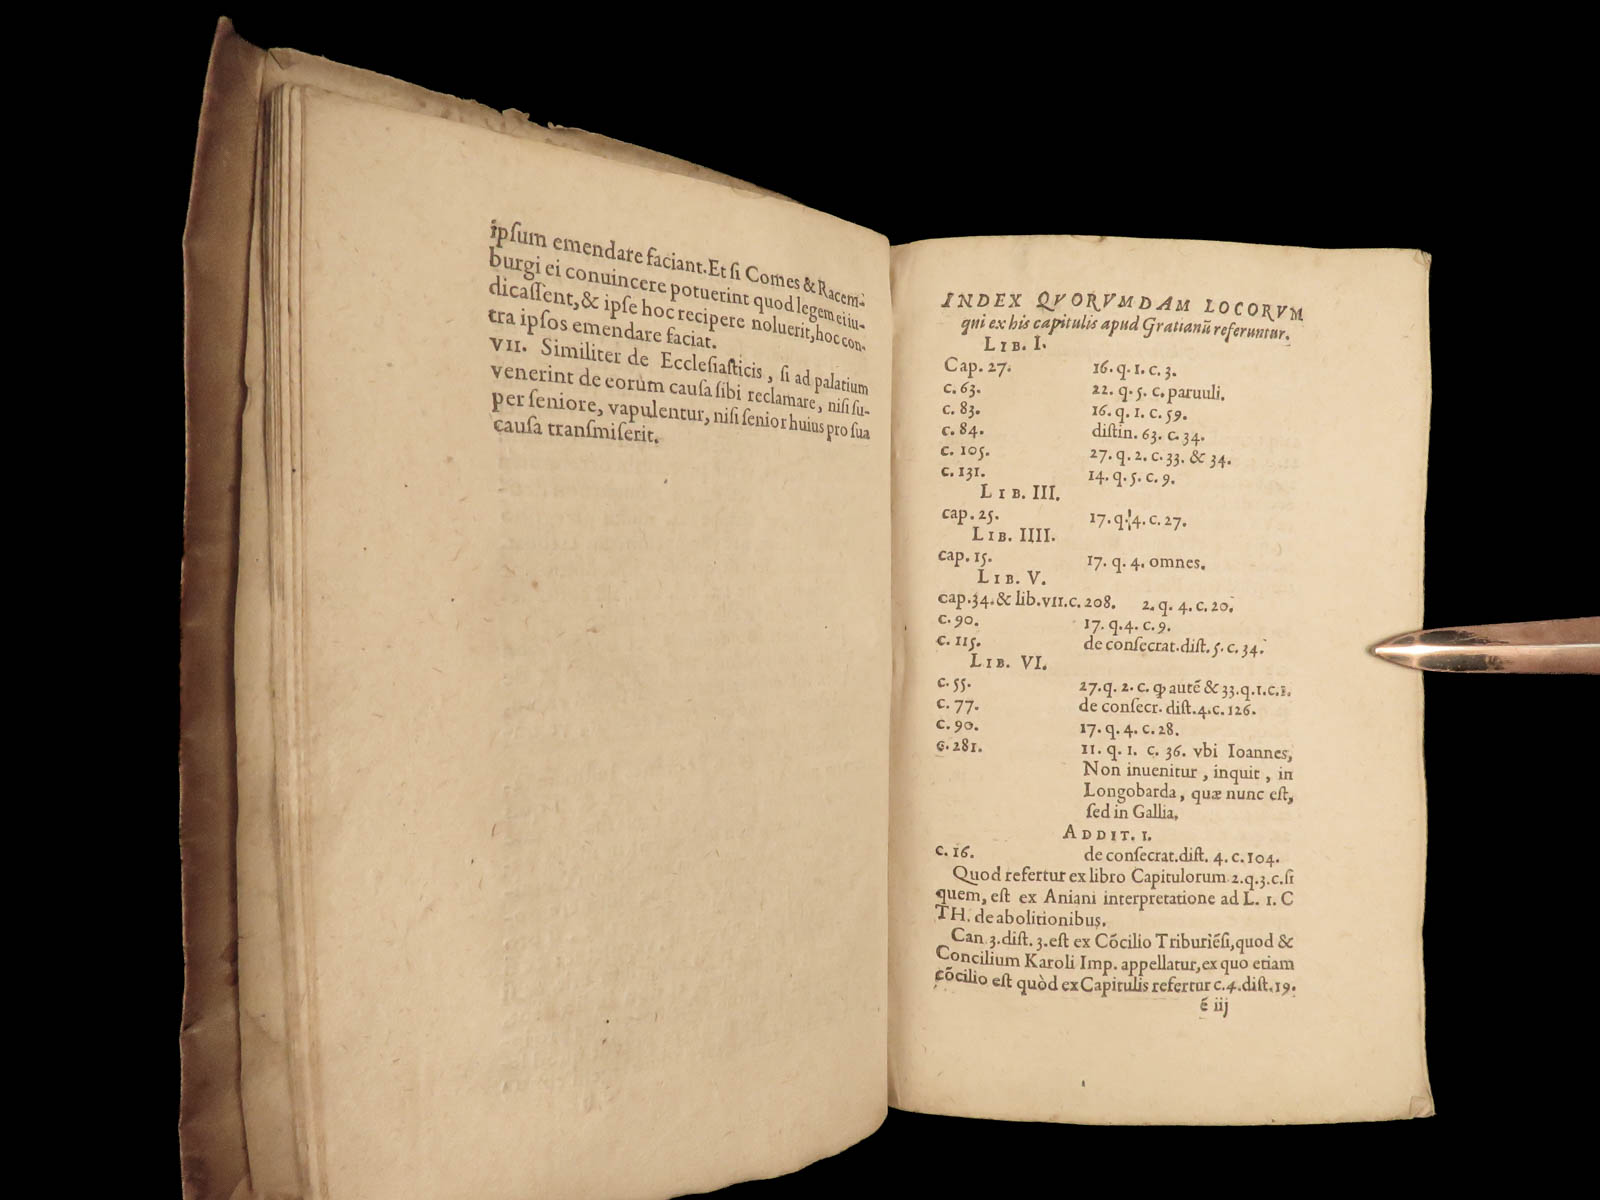 ipſum emendare faciant. Et ſi Comes & Racem-
burgi ei conuincere potuerint quod legem ei iu-
dicaſſent, & ipſe hoc recipere noluerit, hoc con-
tra ipſos emendare faciat.
VII. Similiter de Eccleſiaſticis, ſi ad palatium
venerint de eorum cauſa ſibi reclamare, niſi ſu-
per ſeniore, vapulentur, niſi ſenior huius pro ſua
cauſa tranſmiſerit.
INDEX QVORVMDAM LOCORVM
qui ex his capitulis apud Gratianū referuntur.
LIB. I.
Cap. 27. 16. q. 1. c. 3.
c. 63. 22. q. 5. c. paruuli.
c. 83. 16. q. 1. c. 59.
c. 84. diſtin. 63. c. 34.
c. 105. 27. q. 2. c. 33. & 34.
c. 131. 14. q. 5. c. 9.
LIB. III.
cap. 25. 17. q. 4. c. 27.
LIB. IIII.
cap. 15. 17. q. 4. omnes.
LIB. V.
cap. 34. & lib. VII. c. 208. 2. q. 4. c. 20.
c. 90. 17. q. 4. c. 9.
c. 115. de conſecrat. diſt. 5. c. 34.
LIB. VI.
c. 55. 27. q. 2. c. ꝙ autē & 33. q. 1. c. 1.
c. 77. de conſecr. diſt. 4. c. 126.
c. 90. 17. q. 4. c. 28.
c. 281. 11. q. 1. c. 36. vbi Ioannes,
Non inuenitur, inquit, in
Longobarda, quæ nunc eſt,
ſed in Gallia.
ADDIT. I.
c. 16. de conſecrat. diſt. 4. c. 104.
Quod refertur ex libro Capitulorum 2. q. 3. c. ſi
quem, eſt ex Aniani interpretatione ad L. 1. C
TH. de abolitionibus.
Can 3. diſt. 3. eſt ex Cōcilio Triburiēſi, quod &
Concilium Karoli Imp. appellatur, ex quo etiam
cōcilio eſt quòd ex Capitulis refertur c. 4. diſt. 19.
é iij